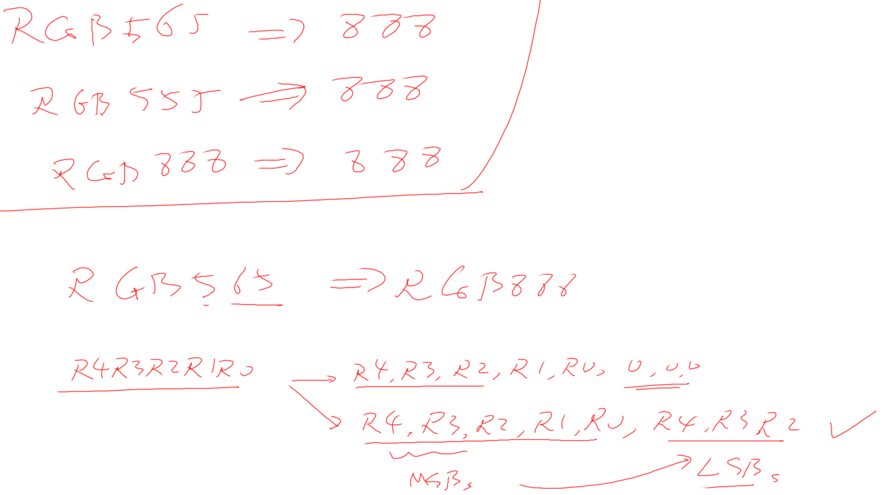 RGB565 ⇒ 888
RGB555 → 888
RGB888 ⇒ 888
RGB565 ⇒ RGB888
R4R3R2R1R0 → R4, R3, R2, R1, R0, 0, 0, 0
R4, R3, R2, R1, R0, R4, R3, R2 ✓
MSBs → LSBs